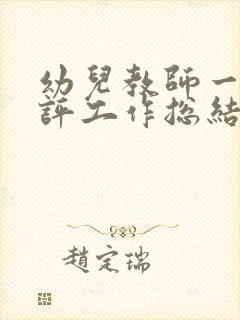 幼兒教師一
評工作總結
趙定瑞